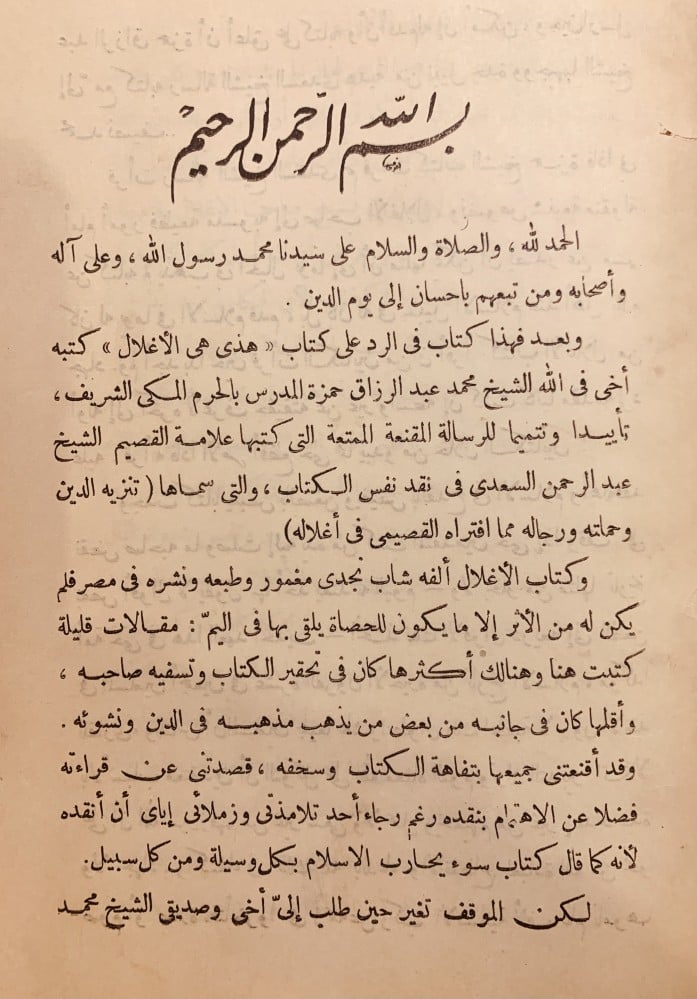 بسم الله الرحمن الرحيم
الحمد لله ، والصلاة والسلام على سيدنا محمد رسول الله ، وعلى آله
وأصحابه ومن تبعهم باحسان إلى يوم الدين .
وبعد فهذا كتاب فى الرد على كتاب « هذى هى الأغلال » كتبه
أخى فى الله الشيخ محمد عبد الرزاق حمزة المدرس بالحرم المكى الشريف ،
تأييدا وتتميما للرسالة المقنعة الممتعة التى كتبها علامة القصيم الشيخ
عبد الرحمن السعدى فى نقد نفس الكتاب ، والتى سماها ( تنزيه الدين
وحملته ورجاله مما افتراه القصيمى فى أغلاله)
وكتاب الأغلال ألفه شاب نجدى مغمور وطبعه ونشره فى مصر فلم
يكن له من الأثر إلا ما يكون للحصاة يلقى بها فى اليمّ : مقالات قليلة
كتبت هنا وهنالك أكثرها كان فى تحقير الكتاب وتسفيه صاحبه ،
وأقلها كان فى جانبه من بعض من يذهب مذهبه فى الدين ونشوئه .
وقد أقنعتنى جميعها بتفاهة الكتاب وسخفه ، فصدتنى عن قراءته
فضلا عن الاهتمام بنقده رغم رجاء أحد تلامذتى وزملائى إياى أن أنقده
لأنه كما قال كتاب سوء يحارب الاسلام بكل وسيلة ومن كل سبيل.
لكن الموقف تغير حين طلب إلىّ أخى وصديقى الشيخ محمد